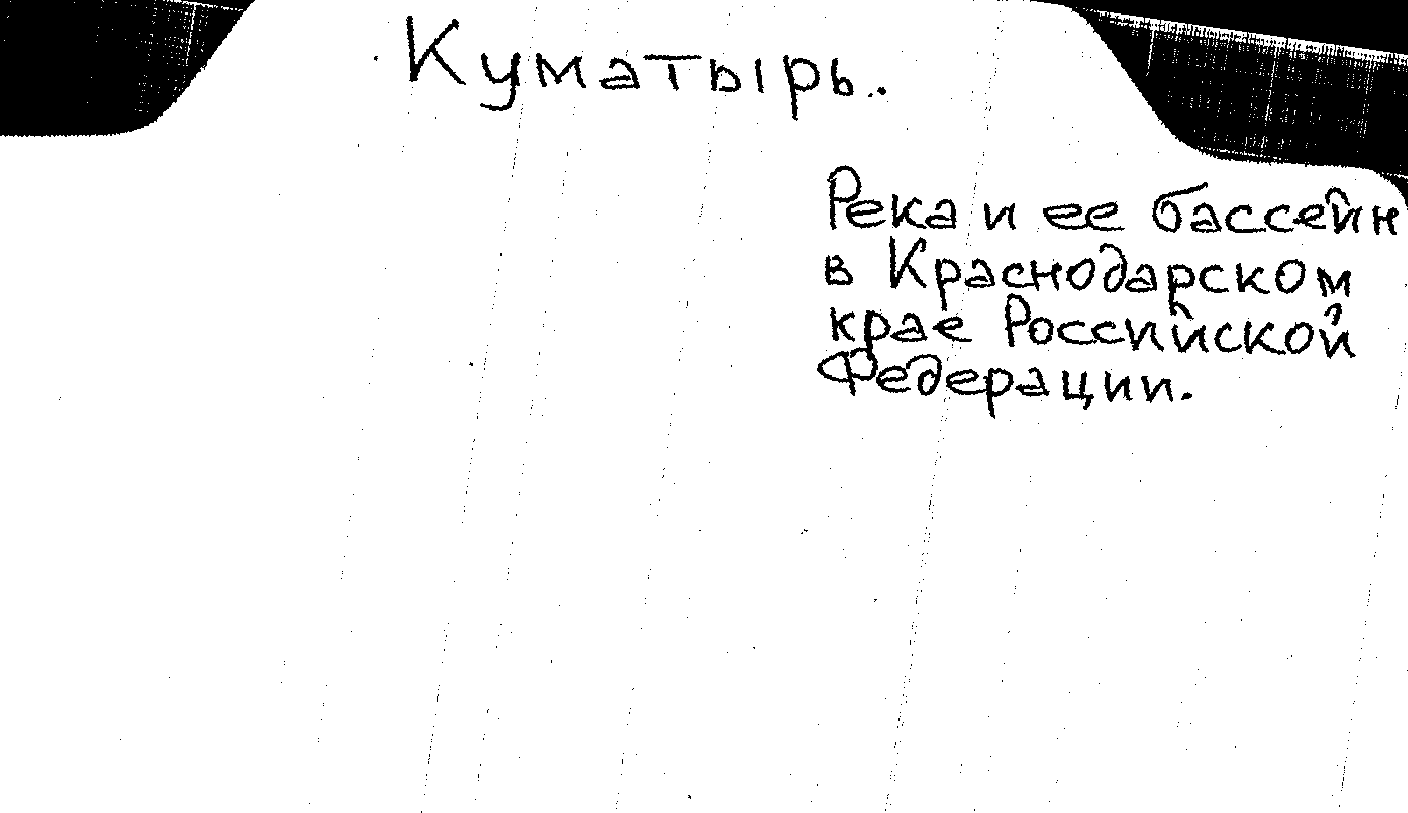 Куматырь.
Река и ее бассейн
в Краснодарском
крае Российской
Федерации.